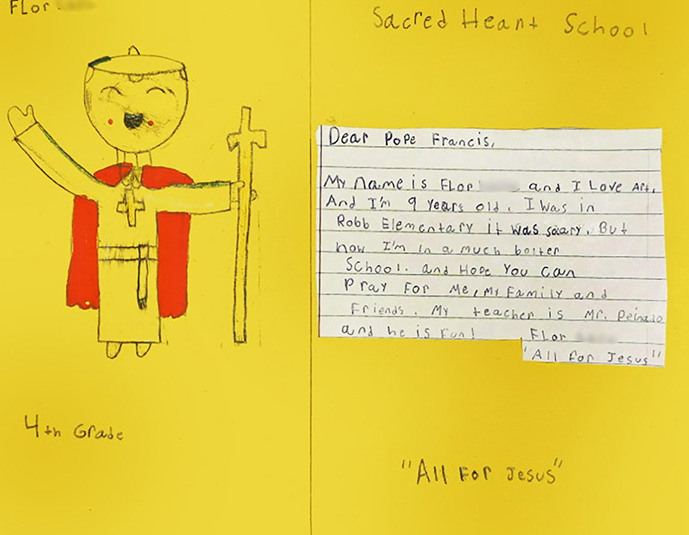 FLor
4th Grade
Sacred Heart School
Dear Pope Francis,
My name is FLor and I Love Art.
And I'm 9 years old. I was in
Robb Elementary it was scary. But
now I'm in a much better
School. and Hope You can
Pray For Me, My Family and
Friends. My teacher is Mr.
and he is Fun! FLor
"All For Jesus"
"All For Jesus"